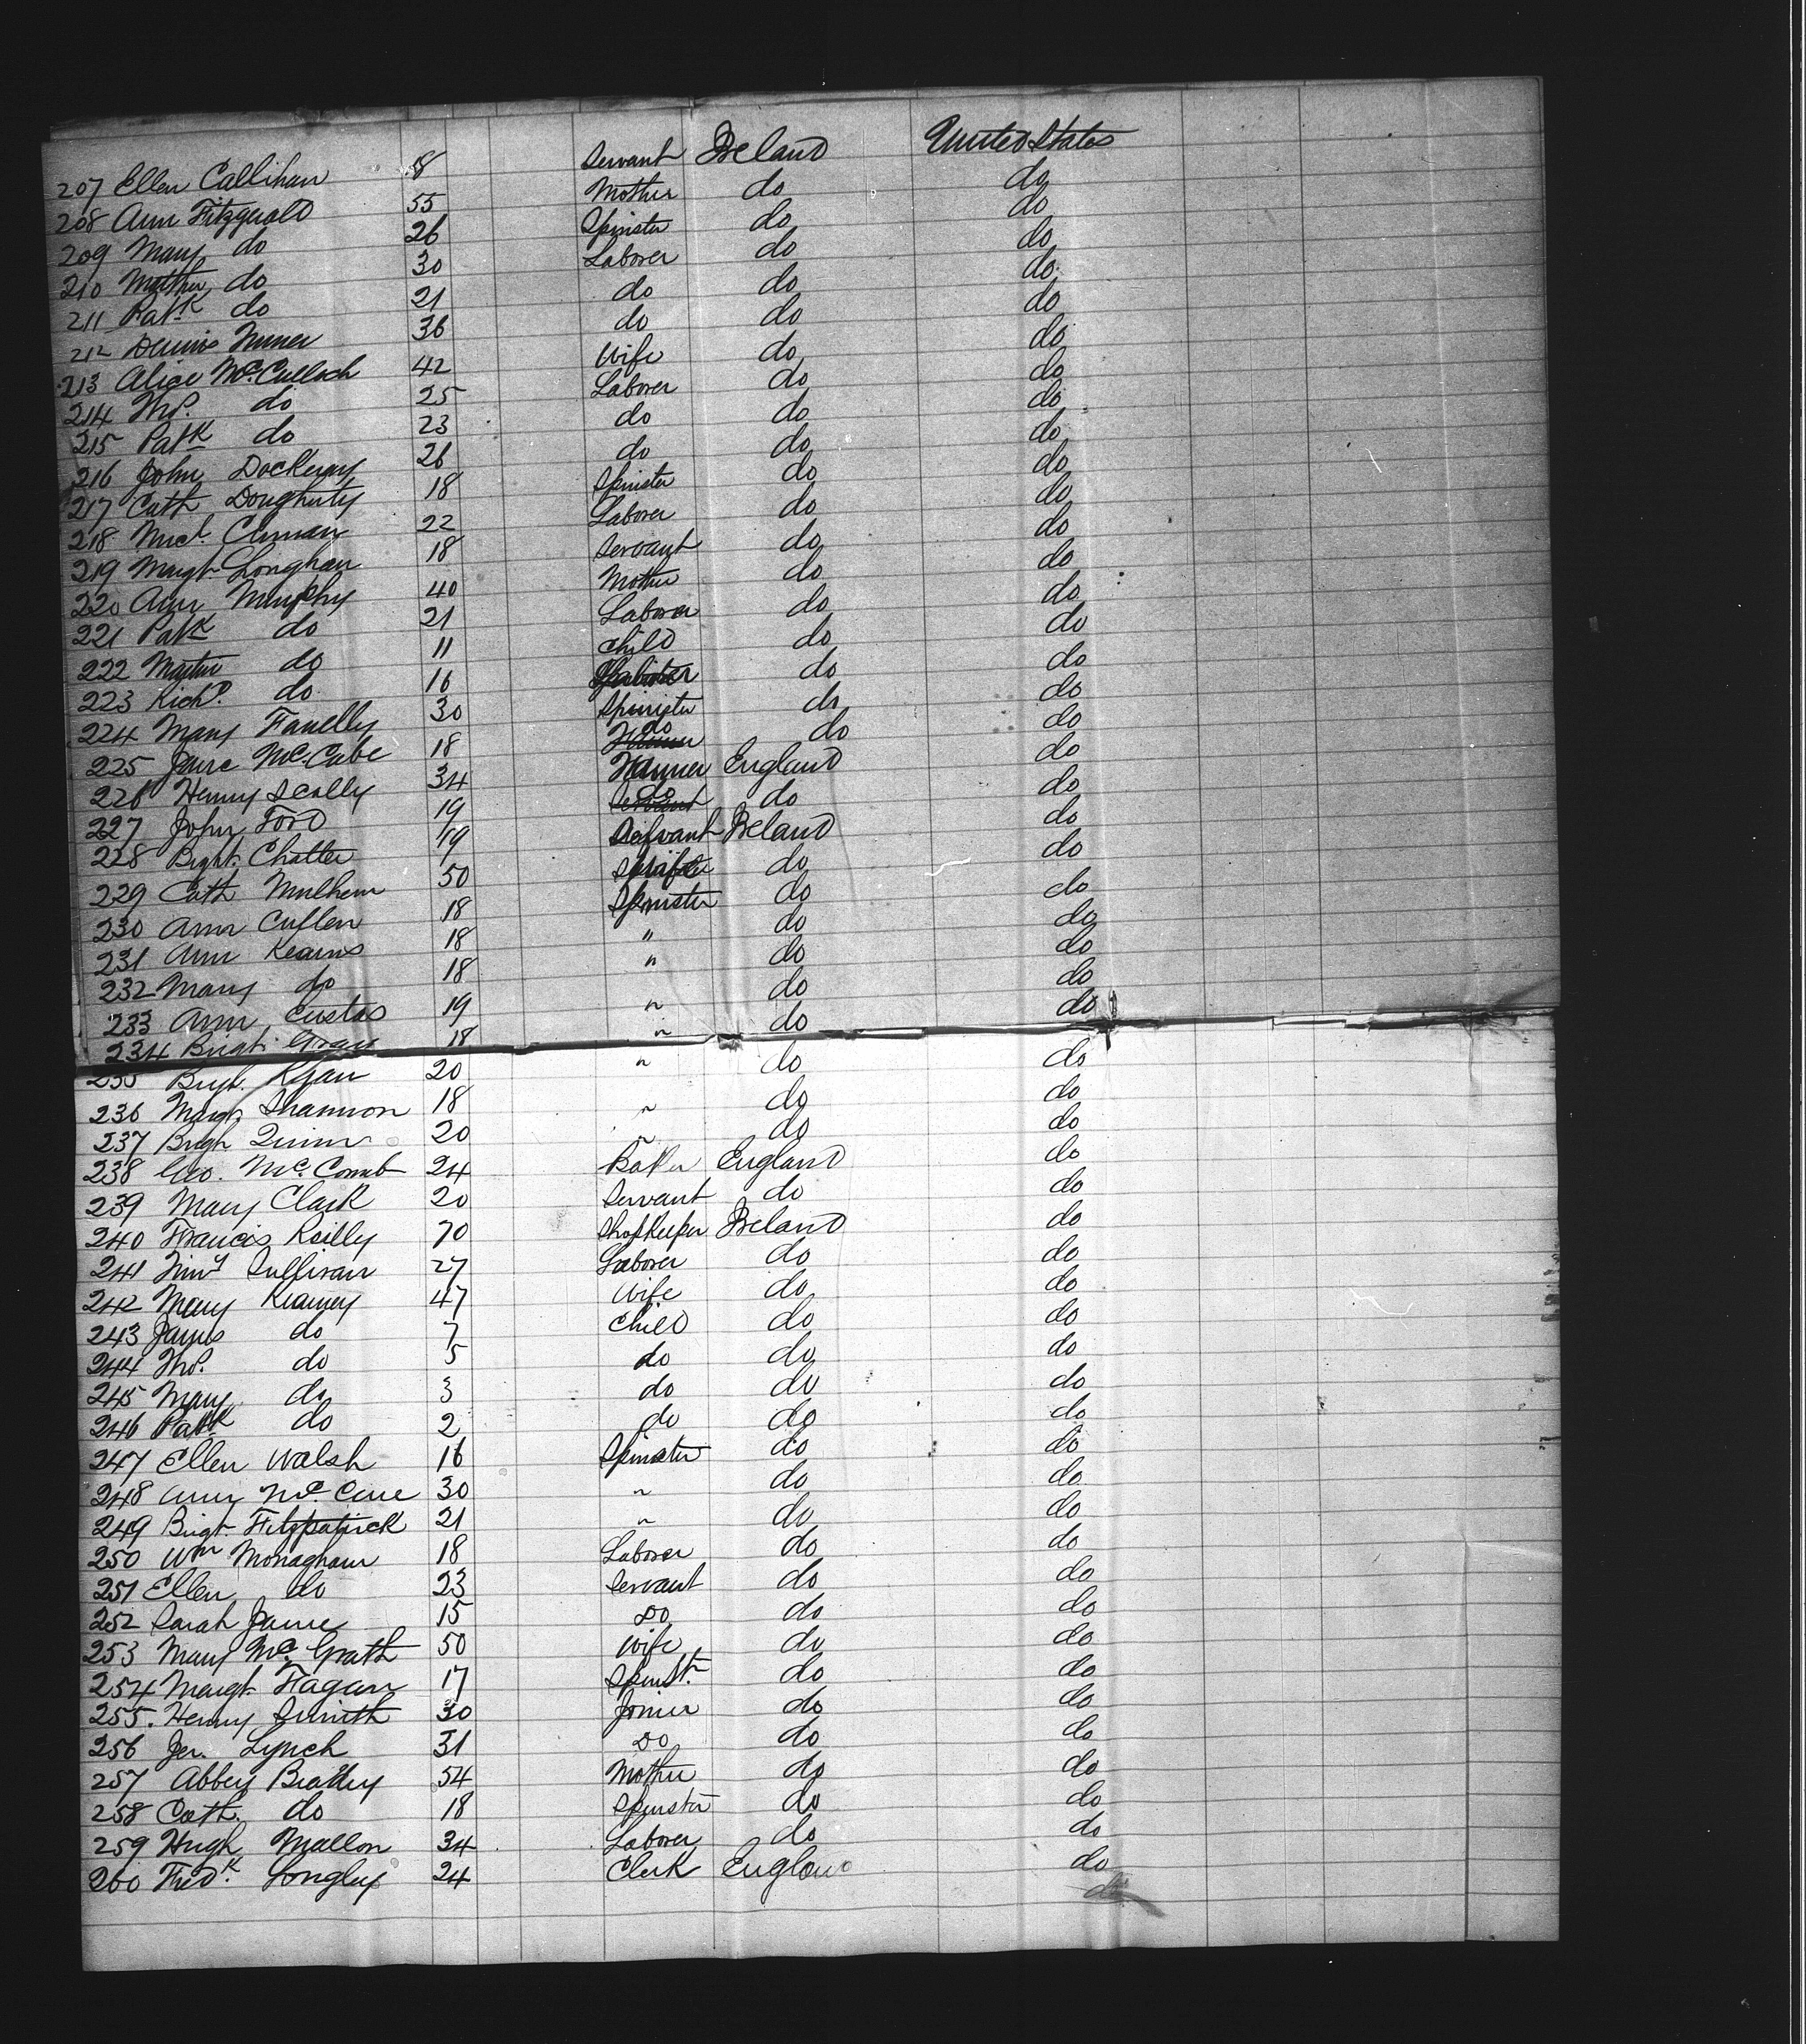 207 Ellen Callihan 8 Servant Ireland United States
208 Ann Fitzgerald 55 Mother do do
209 Mary do 26 Spinster do do
210 do 30 Laborer do do
211 Patk do 21 do do do
212 Dennis 36 do do do
213 Alice McCulloch 42 Wife do do
214 Thos. do 25 Laborer do do
215 Patk do 23 do do do
216 John Dockeray 26 do do do
217 Cath Dougherty 18 Spinster do do
218 Micl. 22 Laborer do do
219 Margt. Longhan 18 Servant do do
220 Ann Murphy 40 Mother do do
221 Patk do 21 Laborer do do
222 Martin do 11 Child do do
223 Richd. do 16 Laborer do do
224 Mary Fanelly 30 Spinster do do
225 Jane McCabe 18 do do do
226 Henry Scally 34 Farmer England do
227 John Ford 19 do do do
228 Bright. Chatter 19 Servant Ireland do
229 Cath Mulhern 50 Wife do do
230 Ann Cullen 18 Spinster do do
231 Ann Kearns 18 " do do
232 Mary do 18 " do do
233 Ann Custas 19 " do do
234 Brigt. Gray 18 " do do
235 Brigt. Ryan 20 " do do
236 Margt. Shannon 18 " do do
237 Brigh Quinn 20 " do do
238 Geo. McComb 24 Baker England do
239 Mary Clark 20 Servant do do
240 Francis Reilly 70 Shopkeeper Ireland do
241 Timy Sullivan 27 Laborer do do
242 Mary Kearney 47 Wife do do
243 James do 7 Child do do
244 Thos. do 5 do do do
245 Mary do 3 do do do
246 Patk do 2 do do do
247 Ellen Walsh 16 Spinster do do
248 Ann McCue 30 " do do
249 Brigt. Fitzpatrick 21 " do do
250 Wm Monaghan 18 Laborer do do
251 Ellen do 23 Servant do do
252 Sarah Jane 15 Do do do
253 Mary McGrath 50 Wife do do
254 Margt. Fagan 17 Spinst. do do
255. Henry Smith 30 Joiner do do
256 Jer. Lynch 31 Do do do
257 Abbey Bradley 54 Mother do do
258 Cath. do 18 Spinster do do
259 Hugh Mallon 34 Laborer do do
260 Fredk. Longley 24 Clerk England do
do